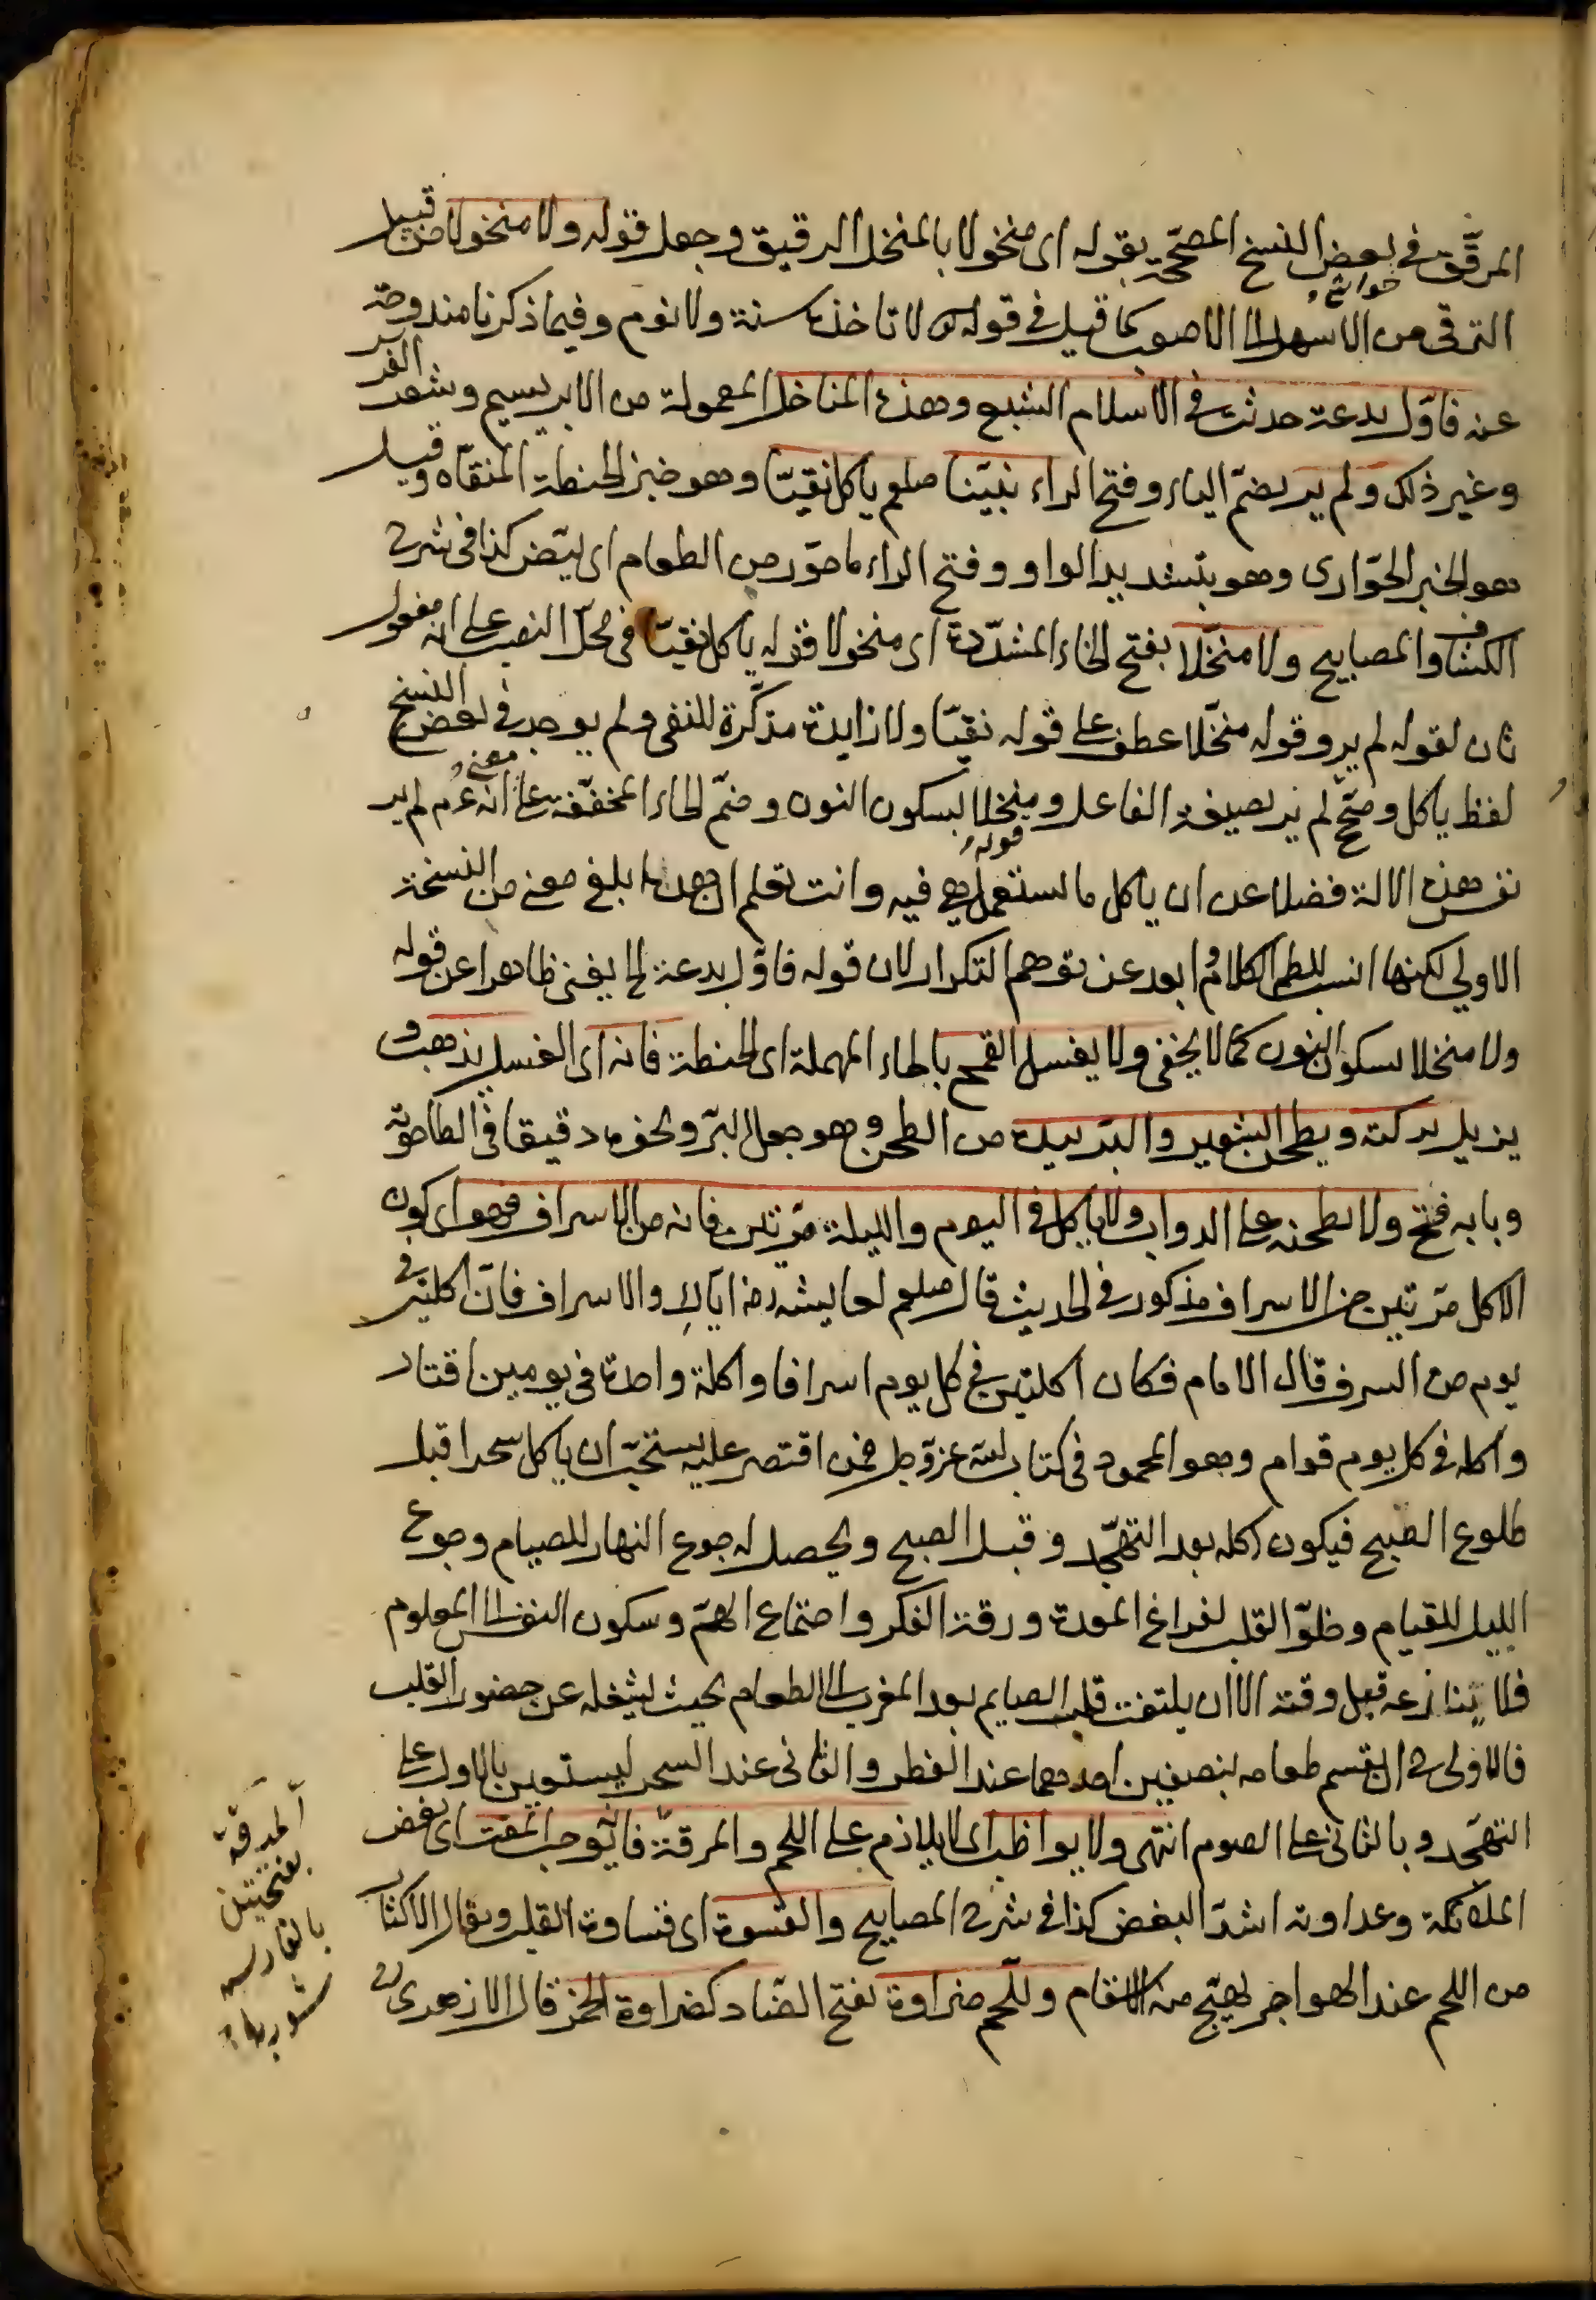 المرقّق في بعض النسخ المصحّحة بقوله اى منخولا بالمنخل الرقيق وجعل قوله ولا منخولا من قبيل
حواشي
الترقى من الاسهل الى الاصوب كما قيل في قوله لا تاخذه سنة ولا نوم وفيما ذكرنا مندوحة
عنه فاوّل بدعة حدثت في الاسلام الشبع وهذه المناخل المعمولة من الابريسيم وشعر الفرس
وغير ذلك ولم ير بضمّ الياء وفتح الراء نبيّنا صلعم ياكل نقيّا وهو خبز الحنطة المنقّاه وقيل
هو الخبز الحوّارى وهو بتشديد الواو وفتح الراء ما حوّر من الطعام اى بيّض كذا في شرح
الكشاف والمصابيح ولا منخّلا بفتح الخاء المشدّدة اى منخولا قوله ياكل نقيّا في محلّ النصب على انه مفعول
ثان لقوله لم ير وقوله منخّلا عطف على قوله نقيّا ولا زايدة مذكّرة للنفى ولم يوجد في بعض النسخ
لفظ ياكل وصحّ لم ير بصيغة الفاعل ومنخلا بسكون النون وضمّ الخاء المخففة على معنى انه عم لم ير
نفس هذه الالة فضلا عن ان ياكل ما يستعمل هي فيه وانت تعلم ان هذا ابلغ معنى من النسخة
قوله
الاولي لكنها انسب لنظم الكلام وابعد عن توهم التكرار لان قوله فاوّل بدعة الخ يغنى ظاهرا عن قوله
ولا منخلا بسكون النون كما لا يخفى ولا يغسل القمح بالحاء المهملة اى الحنطة فانه اى الغسل يذهب و
يزيل بركته ويطحن الشعير والبرّ بيده من الطحن وهو جعل البرّ ونحوه دقيقا في الطاحونة
وبابه فتح ولا يطحنه على الدواب ولا ياكل في اليوم والليلة مرّتين فانه من الاسراف فهو اى كون
الاكل مرّتين من الاسراف مذكور في الحديث قال صلعم لعايشه رضه ايّاك والاسراف فانّ اكلتين في
يوم من السرف قال الامام فكان اكلتين في كل يوم اسرافا واكلة واحدة في يومين اقتار
واكله في كل يوم قوام وهو المحمود في كتاب الله عزّ وجل فمن اقتصر عليه يستحبّ ان ياكل سحرا قبل
طلوع الصبح فيكون اكله بعد التهجّد وقبل الصبح ويحصل له جوع النهار للصيام وجوع
الليل للقيام وخلوّ القلب لفراغ المعدة ورقة الفكر واجتماع الهمّ وسكون النفس الى المعلوم
فلا ينازعه قبل وقته الا ان يلتفت قلب الصايم بعد المغرب الى الطعام بحيث يشغله عن حضور القلب
فالاولى ح ان يقسم طعامه بنصفين احدهما عند الفطر والثانى عند السحر ليستعين بالاول على
التهجّد وبالثانى على الصوم انتهى ولا يواظب اى لا يلازم على اللحم والمرقة فانّه يوجب المقت اى بغض
الملائكة وعداوته اشدّ البغض كذا في شرح المصابيح والقسوة اى قساوة القلب ويقال الاكثار
من اللحم عند الهواجر يهيّج منه الاسقام وللّحم ضراوة بفتح الضاد كضراوة الخمر قال الازهرى
المرقة
بفتحتين
بالفارسيه
شوربا